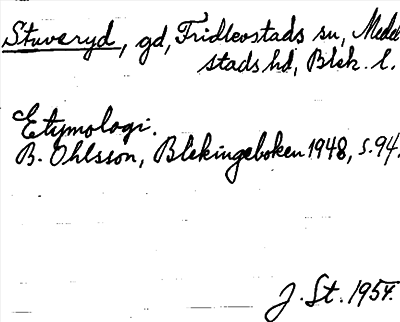 Stuveryd, gd, Fridlevstads sn, Medel
stads hd, Blek. l.
Etymologi.
B. Ohlsson, Blekingeboken 1948, s. 94.
J. St. 1954.